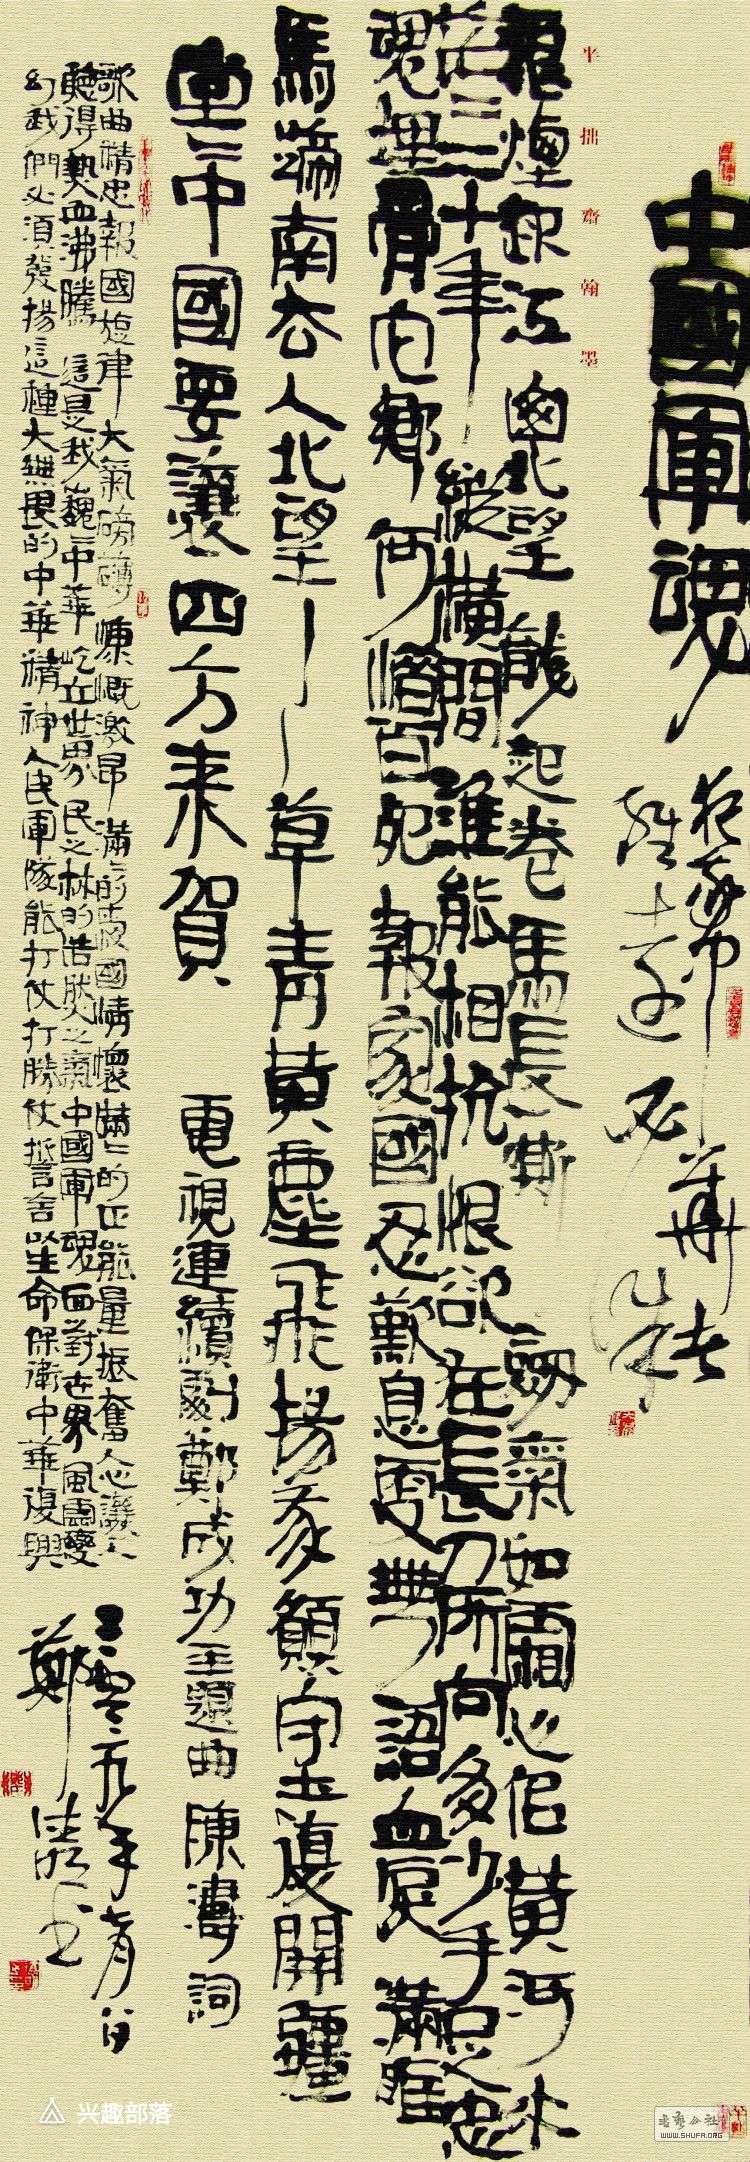 中國軍魂
犯我中華者
雖遠必誅
半拙齋翰墨
狼煙起江山北望龍起卷馬長嘶劍氣如霜心似黃河水
茫茫二十年縱橫間誰能相抗恨欲狂長刀所向多少手足忠
魂埋骨它鄉何惜百死報家國忍嘆息更無語血淚滿眶
馬蹄南去人北望〻〻〻草青黃塵飛揚我願守土復開疆
堂〻中國要讓四方來賀 電視連續劇鄭成功主題曲 陳濤詞
歌曲精忠報國旋律大氣磅礴慷慨激昂滿〻的愛國情懷滿〻的正能量振奮人心讓人
聽得熱血沸騰這是我巍〻中華屹立世界民之林的浩然之氣中國軍魂面對世界風雲變
幻我們必須發揚這種大無畏的中華精神人民軍隊能打仗打勝仗誓以生命保衛中華復興
二零一九年
鄭
兴趣部落
书艺公社
WWW.SHUFA.ORG